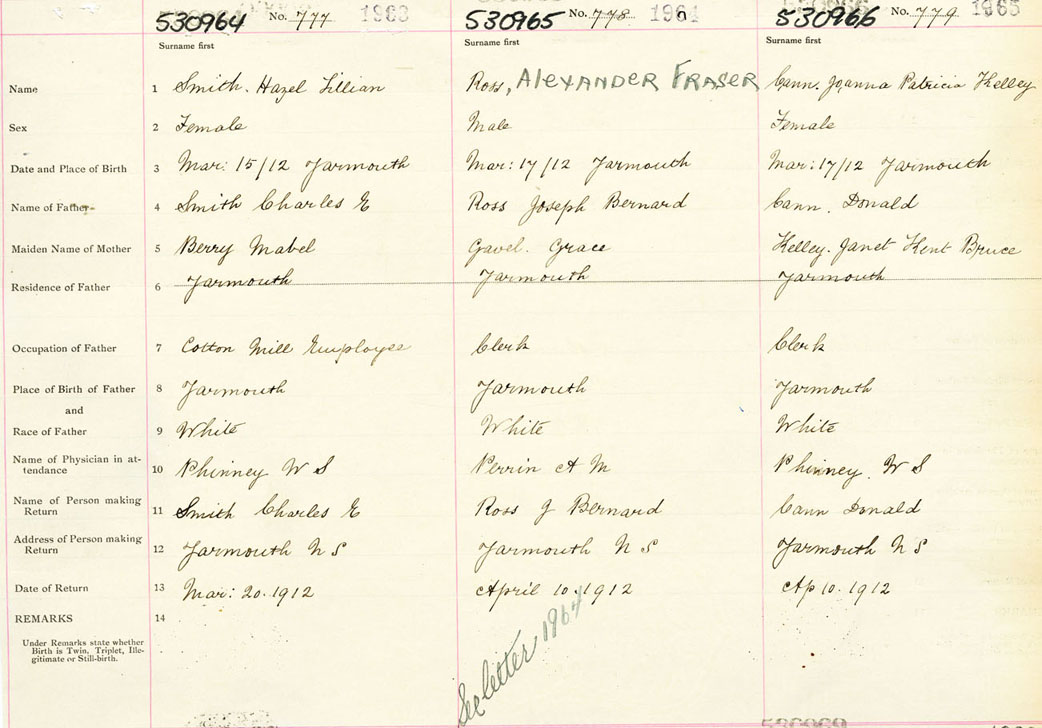 530964 No. 777 1963 530965 No. 778 1964 530966 No. 779 1965
Surname first Surname first Surname first
Name 1 Smith. Hazel Lillian Ross, ALEXANDER FRASER Cann. Joanna Patricia Kelley
Sex 2 Female Male Female
Date and Place of Birth 3 Mar: 15/12 Yarmouth Mar: 17/12 Yarmouth Mar: 17/12 Yarmouth
Name of Father 4 Smith Charles E Ross Joseph Bernard Cann. Donald
Maiden Name of Mother 5 Berry Mabel Gavel. Grace Kelley. Janet Kent Bruce
Residence of Father 6 Yarmouth Yarmouth Yarmouth
Occupation of Father 7 Cotton Mill Employee Clerk Clerk
Place of Birth of Father 8 Yarmouth Yarmouth Yarmouth
and
Race of Father 9 White White White
Name of Physician in at-
tendance 10 Phinney W S Perrin A M Phinney. W S
Name of Person making
Return 11 Smith Charles E Ross J Bernard Cann Donald
Address of Person making
Return 12 Yarmouth N S Yarmouth N S Yarmouth N S
Date of Return 13 Mar: 20. 1912 April 10. 1912 Ap 10. 1912
REMARKS 14
Under Remarks state whether
Birth is Twin, Triplet, Ille-
gitimate or Still-birth.
See letter 1964